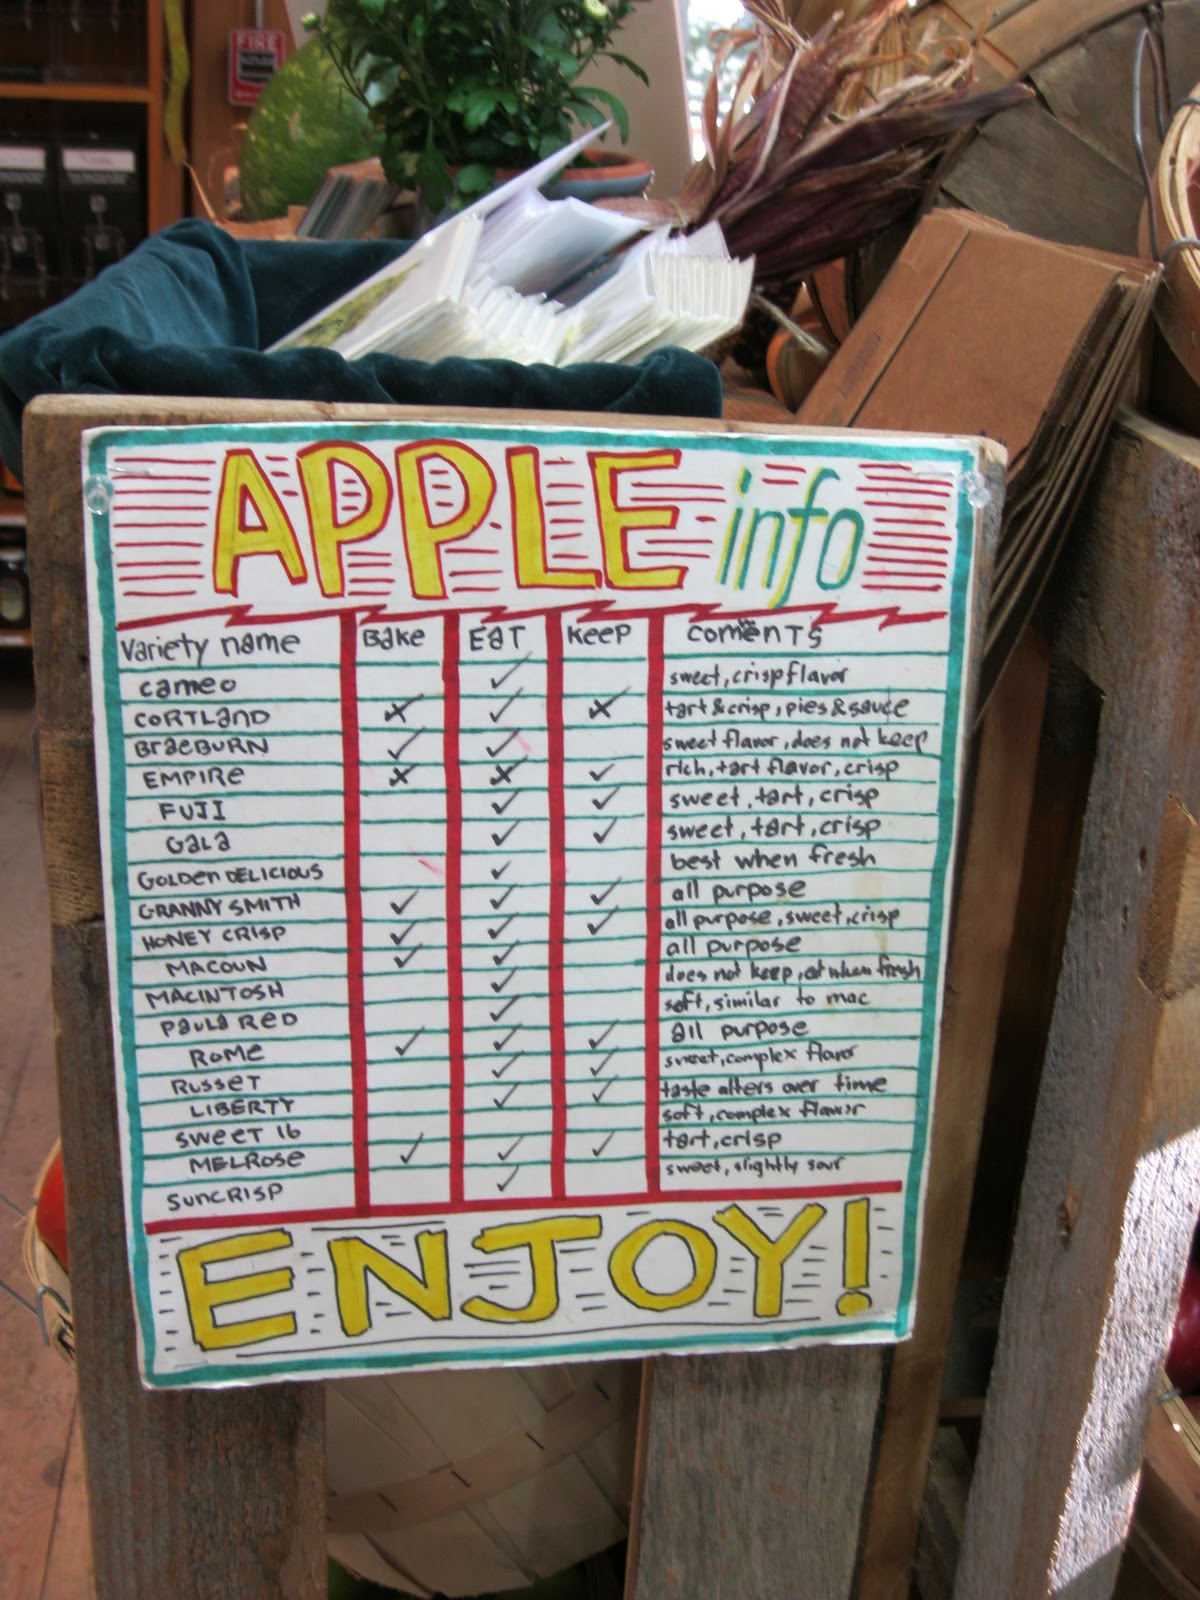 FIRE
APPLE info
Variety name Bake Eat Keep Coments
Cameo ✓ sweet, crisp flavor
CORTLAND ✗ ✓ ✗ tart & crisp, pies & sauce
BraeBURN ✓ ✓ sweet flavor, does not keep
EMPIRE ✗ ✗ ✓ rich, tart flavor, crisp
FUJI ✓ ✓ sweet, tart, crisp
Gala ✓ ✓ sweet, tart, crisp
GOLDen DELICIOUS ✓ best when fresh
GRANNY SMITH ✓ ✓ ✓ all purpose
HONEY CRISP ✓ ✓ ✓ all purpose, sweet, crisp
MACOUN ✓ ✓ all purpose
MACINTOSH ✓ does not keep, eat when fresh
Paula RED ✓ soft, similar to mac
ROME ✓ ✓ ✓ all purpose
RUSSET ✓ ✓ sweet, complex flavor
LIBERTY ✓ ✓ taste alters over time
SWEET 16 soft, complex flavor
MELROSE ✓ ✓ ✓ tart, crisp
SUNCRISP ✓ sweet, slightly sour
ENJOY!